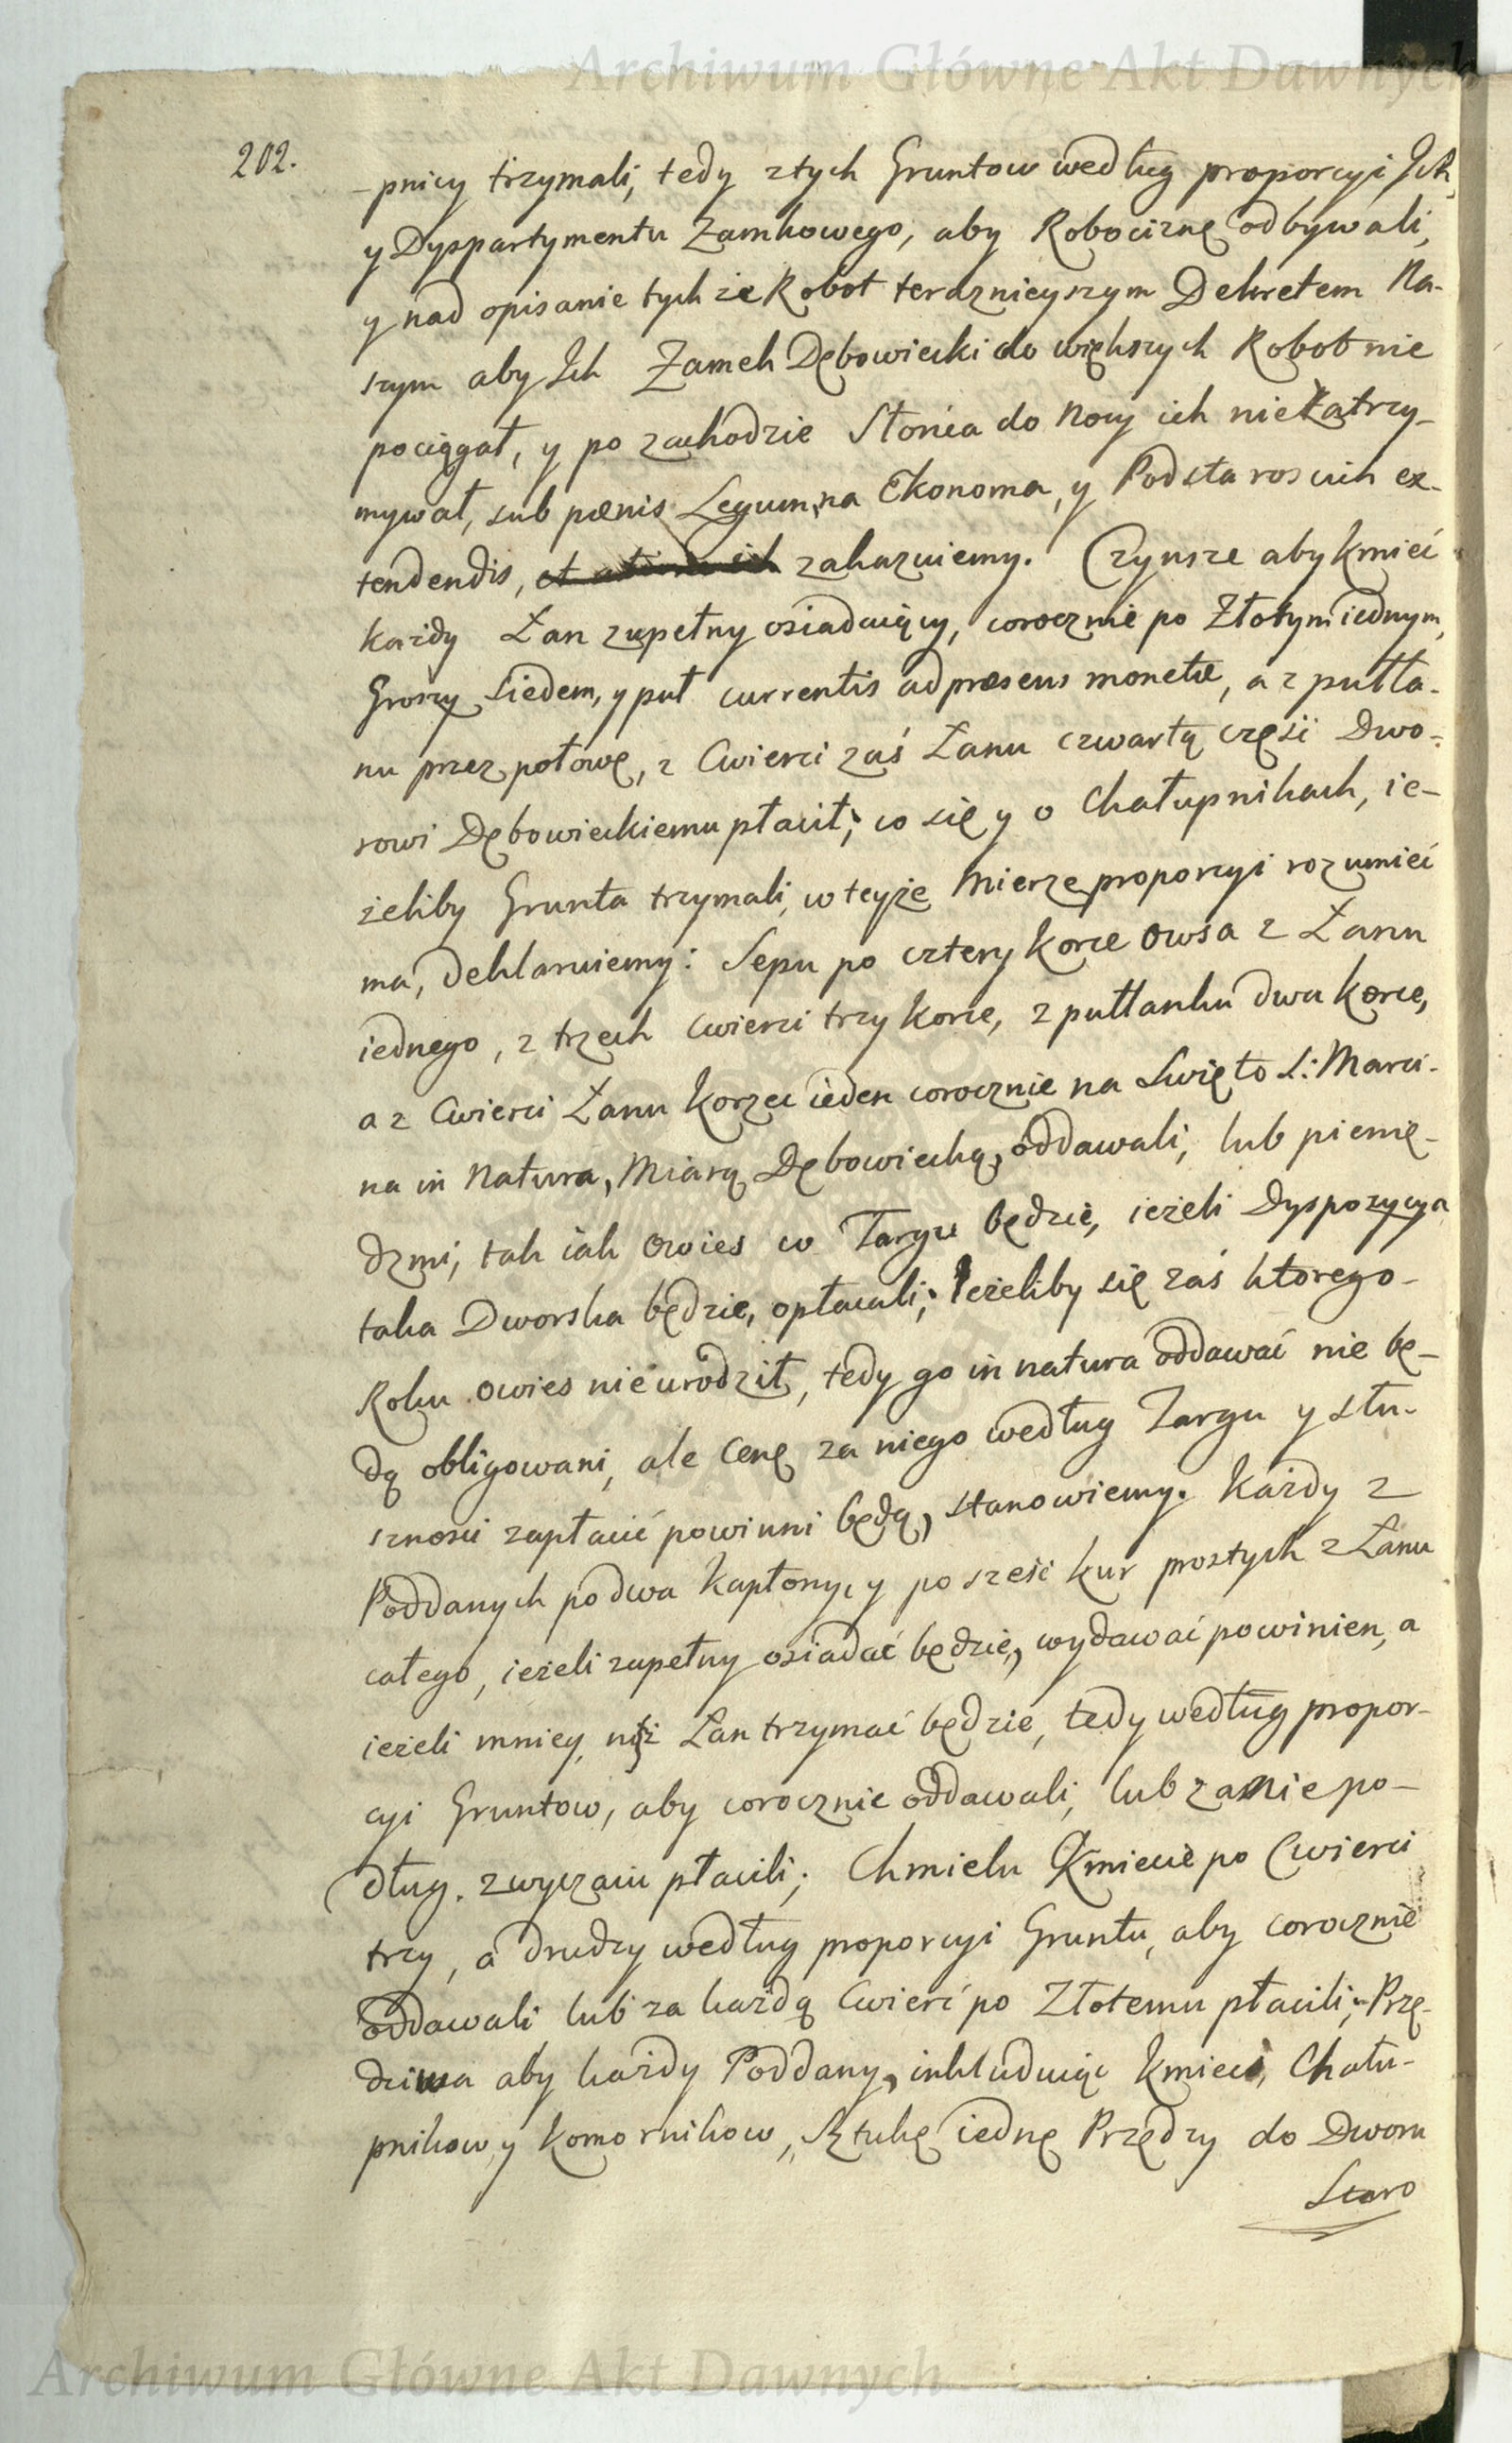 Archiwum Główne Akt Dawnych
202.
-pnicy trzymali, tedy z tych Gruntow według proporcyi Ich,
y Dyspartymentu Zamkowego, aby Robociznę odbywali,
y nad opisanie tych że Robot teraznieyszym Dekretem Na-
szym aby Ich Zamek Dębowiecki do większych Robot nie
pociągał, y po zachodzie Słońca do Nocy ich nie zatrzy-
mywał, sub pœnis Legum, na Ekonoma, y Podstaroscich ex-
tendendis, zakazuiemy. Czynsze aby kmieć
każdy Łan zupełny osiadaiący, corocznie po Złotym iednym,
Groszy siedem, y puł currentis ad præsens monetæ, a z pułła-
nu przez połowę, z Cwierci zaś Łanu czwartą częsć Dwo-
rowi Dębowieckiemu płacił; co się y o Chałupnikach, ie-
żeliby Grunta trzymali, w teyże Mierze proporcyi rozumieć
ma, deklaruiemy: Sepu po cztery korce Owsa z Łanu
iednego, z trzech cwierci trzy korce, z pułłanku dwa korce,
a z Cwierci Łanu korzec ieden corocznie na Swięto S: Marci-
na in Natura, Miarą Dębowiecką, oddawali, lub pienię-
dzmi, tak iak Owies w Targu będzie, ieżeli Dyspozycya
taka Dworska będzie, opłacali; Ieżeliby się zaś ktorego-
Roku Owies nie urodził, tedy go in natura oddawać nie bę-
dą obligowani, ale Cenę za niego według Targu y słu-
sznosci zapłacić powinni będą, stanowiemy. Każdy z
Poddanych po dwa Kapłony, y po sześć kur prostych z Łanu
całego, ieżeli zupełny osiadać będzie, wydawać powinien, a
ieżeli mniey, niż Łan trzymać będzie, tedy według propor-
cyi Gruntow, aby corocznie oddawali, lub za nie po-
dług. zwyczaiu płacili; Chmielu Kmiecie po Cwierci
trzy, a drudzy według proporcyi Gruntu, aby corocznie
oddawali lub za każdą Cwierć po Złotemu płacili; Przę-
dziwa aby każdy Poddany, inkluduiąc Kmieci, Chału-
pnikow, y Komornikow, Sztukę iednę Przędzy do Dworu
Staro
Archiwum Główne Akt Dawnych